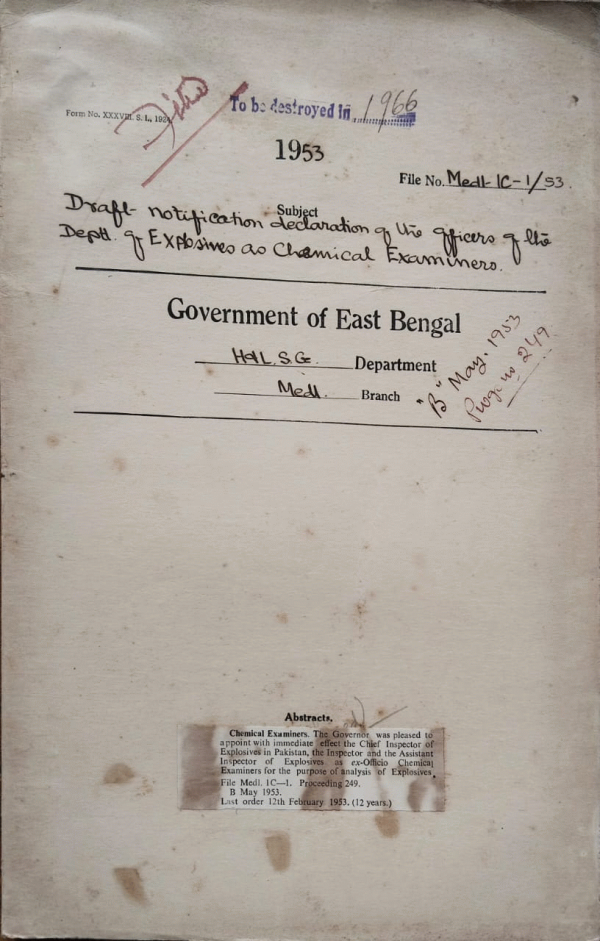 Form No. XXXVIII. S. I., 192
To be destroyed in 1966
1953
File No. Medl-1C-1/53.
Subject
Draft notification declaration of the officers of the
Deptt. of Explosives as Chemical Examiners.
Government of East Bengal
H&L.S.G. Department
Medl. Branch
"B" May. 1953
Progs no 249
Abstracts.
Chemical Examiners. The Governor was pleased to
appoint with immediate effect the Chief Inspector of
Explosives in Pakistan, the Inspector and the Assistant
Inspector of Explosives as ex-Officio Chemical
Examiners for the purpose of analysis of Explosives.
File Medl. 1C—1. Proceeding 249.
B May 1953.
Last order 12th February 1953. (12 years.)